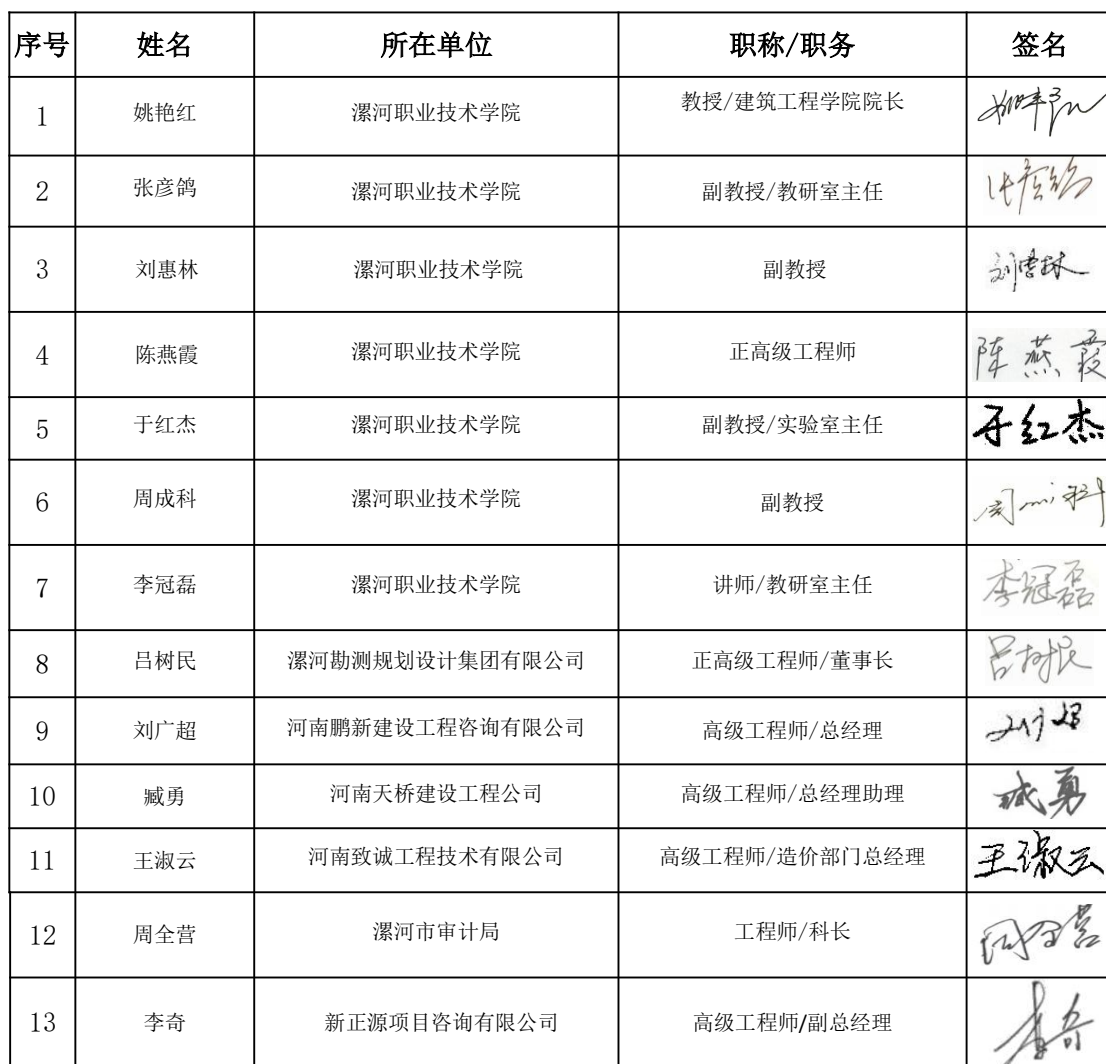 序号 姓名 所在单位 职称/职务 签名
1 姚艳红 漯河职业技术学院 教授/建筑工程学院院长
2 张彦鸽 漯河职业技术学院 副教授/教研室主任 张彦鸽
3 刘惠林 漯河职业技术学院 副教授 刘惠林
4 陈燕霞 漯河职业技术学院 正高级工程师 陈燕霞
5 于红杰 漯河职业技术学院 副教授/实验室主任 于红杰
6 周成科 漯河职业技术学院 副教授
7 李冠磊 漯河职业技术学院 讲师/教研室主任 李冠磊
8 吕树民 漯河勘测规划设计集团有限公司 正高级工程师/董事长 吕树民
9 刘广超 河南鹏新建设工程咨询有限公司 高级工程师/总经理 刘广超
10 臧勇 河南天桥建设工程公司 高级工程师/总经理助理 臧勇
11 王淑云 河南致诚工程技术有限公司 高级工程师/造价部门总经理 王淑云
12 周全营 漯河市审计局 工程师/科长 周全营
13 李奇 新正源项目咨询有限公司 高级工程师/副总经理 李奇